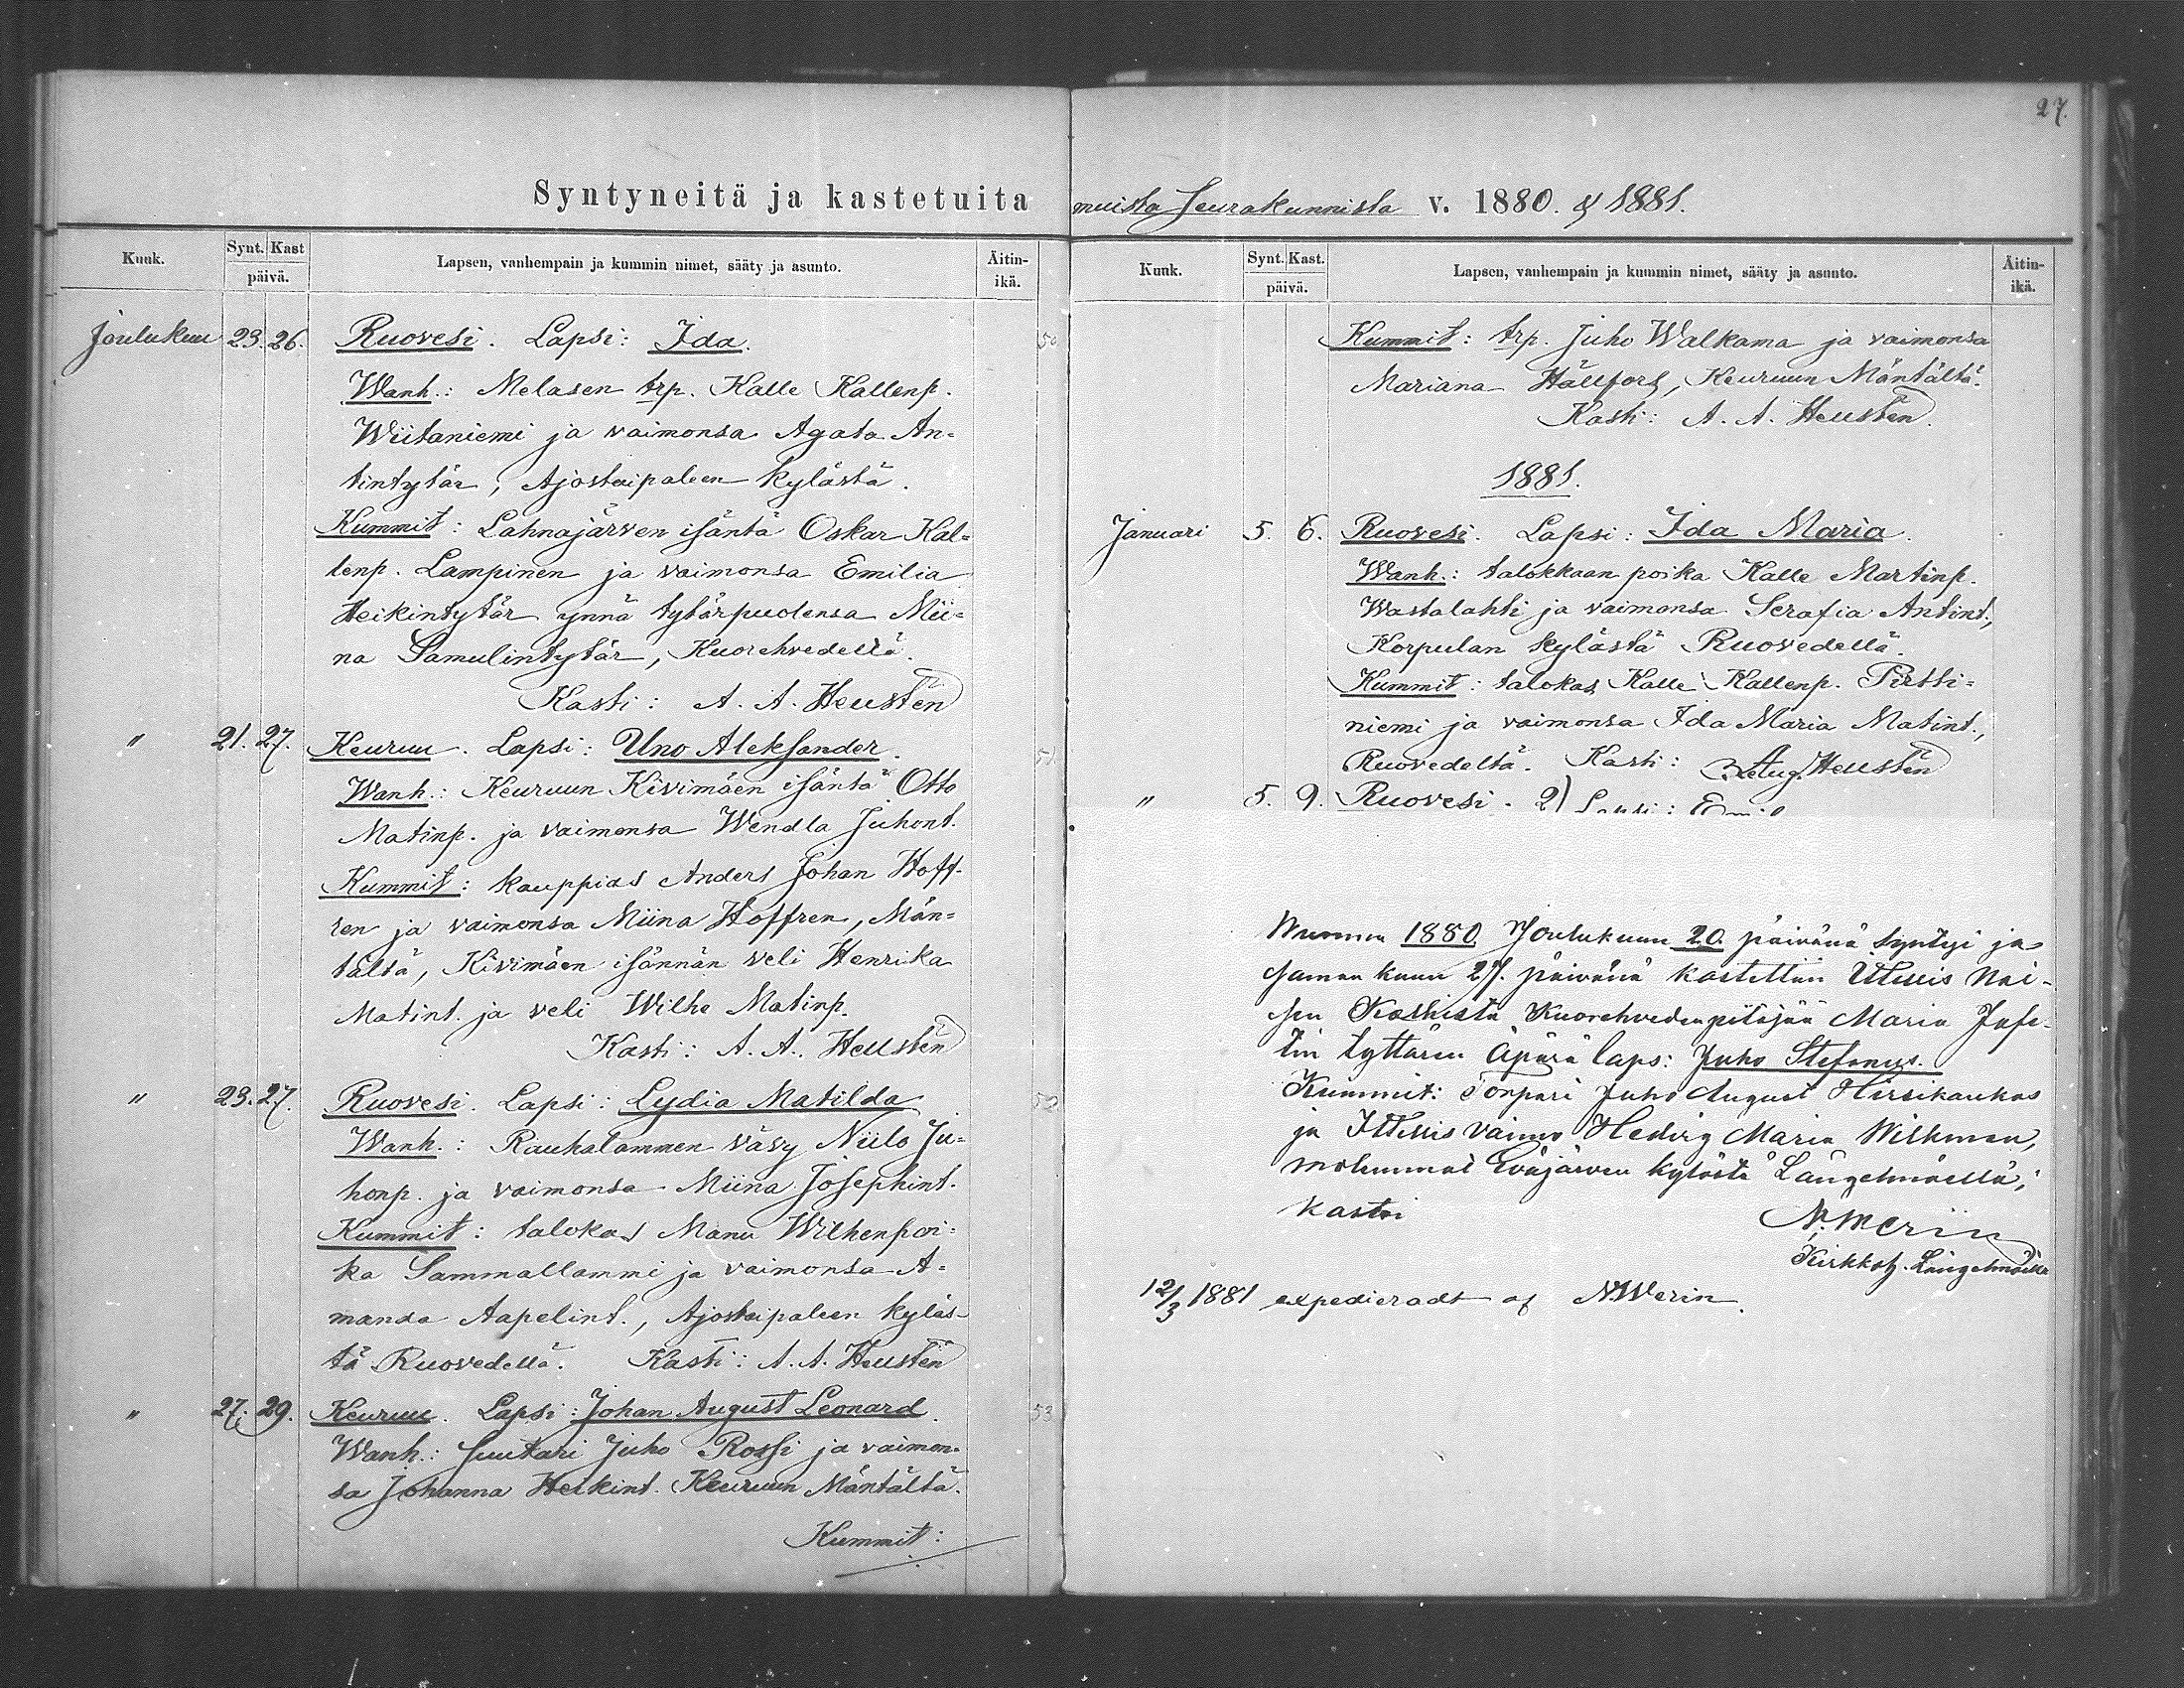 27.
Syntyneitä ja kastetuita muista Seurakunnista v. 1880. & 1881.
Kuuk. Synt. Kast päivä. Lapsen, vanhempain ja kummin nimet, sääty ja asunto. Äitin-ikä.
Joulukuu 23. 26. Ruovesi. Lapsi: Ida. 50
Wanh.: Melasen trp. Kalle Kallenp.
Wiitaniemi ja vaimonsa Agata An=
tintytär, Ajostaipaleen kylästä.
Kummit: Lahnajärven isäntä Oskar Kal=
lenp. Lampinen ja vaimonsa Emilia
Heikintytär ynnä tytärpuolensa Mii=
na Samulintytär, Kuorehvedellä.
Kasti: A. A. Heustén
" 21. 27. Keuruu. Lapsi: Uno Aleksander. 51
Wanh.: Keuruun Kivimäen isäntä Otto
Matinp. ja vaimonsa Wendla Juhont.
Kummit: kauppias Anders Johan Hoff-
ren ja vaimonsa Miina Hoffren, Män=
tältä, Kivimäen isännän veli Henrika
Matint. ja veli Wilhe Matinp.
Kasti: A. A. Heustén
" 23. 27. Ruovesi. Lapsi: Lydia Matilda. 52
Wanh.: Rauhalammen vävy Niilo Ju=
honp. ja vaimonsa Miina Josephint.
Kummit: talokas Manu Wilhenpoi=
ka Sammallammi ja vaimonsa A=
manda Aapelint., Ajostaipaleen kyläs-
tä Ruovedellä. Kasti: A. A. Heustén
" 27. 29. Keuruu. Lapsi: Johan August Leonard. 53
Wanh.: Suutari Juho Rossi ja vaimon-
sa Johanna Heikint. Keuruun Mäntältä.
Kummit:
Kuuk. Synt. Kast. päivä. Lapsen, vanhempain ja kummin nimet, sääty ja asunto. Äitin-ikä.
Kummit: trp. Juho Walkama ja vaimonsa
Mariana Hällfors, Keuruun Mäntältä.
Kasti: A. A. Heustén.
1881.
Januari 5. 6. Ruovesi. Lapsi: Ida Maria.
Wanh.: talokkaan poika Kalle Martinp.
Wastalahti ja vaimonsa Serafia Antint.,
Korpulan kylästä Ruovedellä.
Kummit: talokas Kalle Kallenp. Pirtti=
niemi ja vaimonsa Ida Maria Matint.,
Ruovedeltä. Kasti: Aug. Heustén
" 5. 9. Ruovesi. 2) Lapsi: Emil
Wuonna 1880. Joulukuun 20. päivänä syntyi ja
saman kuun 27. päivänä kastettiin Itsellis Nai-
sen Kuorehveden pitäjää Maria Jose-
tin tyttären äpärä laps: Juho Stefanus.
Kummit: Torpari Juho August Hirsikaukas
ja Itsellis vaimo Hedvig Maria Wilkman,
molemmat Eväjärven kylästä Längelmäellä;
kastoi N. Merin
Kirkkoh. Längelmäellä
12/3 1881 expedieradt af N. Merin.